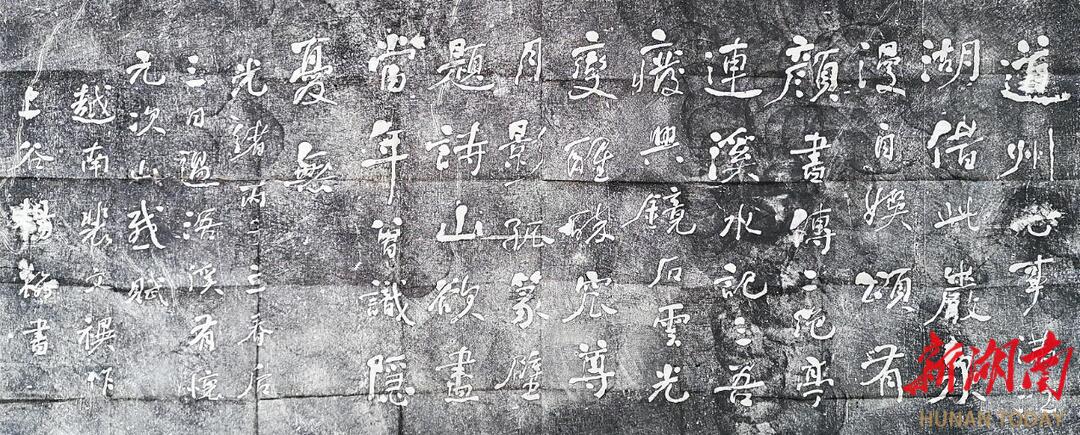 道州心事
湖借此巖
漫自娛頌有
顏書傳二絕亭
連溪水記三吾
廢興鏡石雲光
變醒醉窊尊
月影孤篆壁
題詩山欲盡
當年曾識隱
憂無
光緒丙子三春后
三日過浯溪有懷
元次山感賦
越南裴文禩作
上谷楊翰書
新湖南
HUNAN TODAY